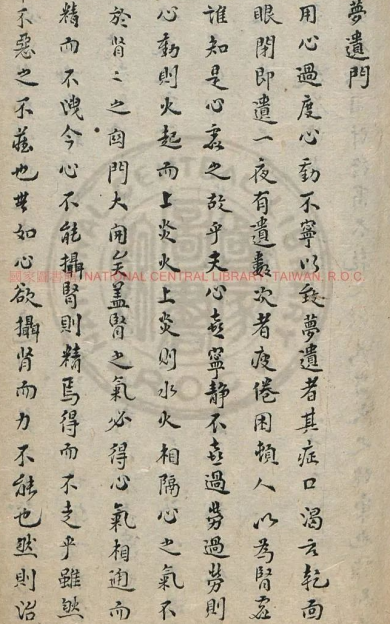 夢遺門
用心過度心動不寧以致夢遺者其症口渴舌乾面
眼閉即遺一夜有遺數次者疲倦困頓人以為腎虛
誰知是心虛之故乎夫心喜寧静不喜過勞過勞則
心動則火起而上炎火上炎則水火相隔心之氣不
於腎〻之関門大開矣盖腎之氣必得心氣相通而
精而不洩今心不能攝腎則精焉得而不走乎雖然
不惡之不藏也無如心欲攝腎而力不能也然則治
國家圖書館 NATIONAL CENTRAL LIBRARY, TAIWAN, R.O.C.